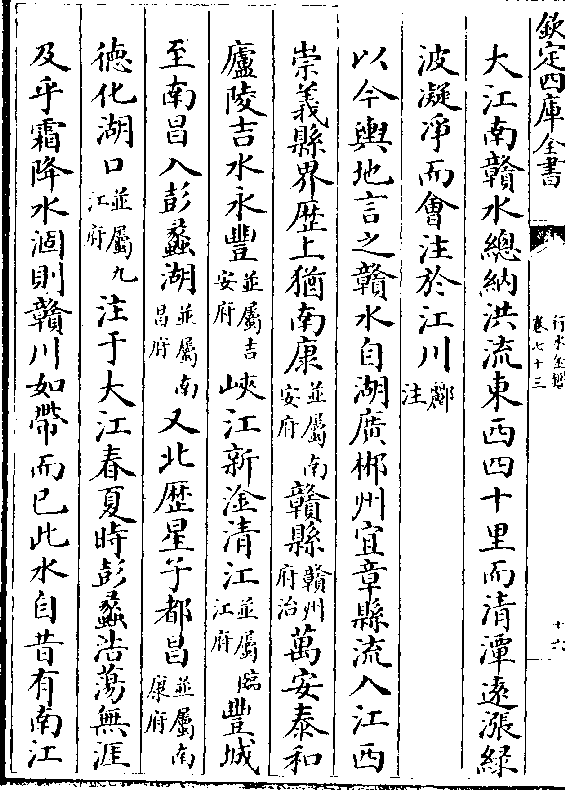 欽定四庫全書
行水金鑑
卷七十三
十六
大江南贛水總納洪流東西四十里而清潭遠漲緑
波凝淨而會注於江川酈注
以今輿地言之贛水自湖廣郴州宜章縣流入江西
崇義縣界歴上猶南康並屬南安府贛縣贛州府治萬安泰和
廬陵吉水永豐並屬吉安府峽江新淦清江並屬臨江府豐城
至南昌入彭蠡湖並屬南昌府又北歴星子都昌並屬南康府
徳化湖口並屬九江府注于大江春夏時彭蠡浩蕩無涯
及乎霜降水涸則贛川如帶而已此水自昔有南江